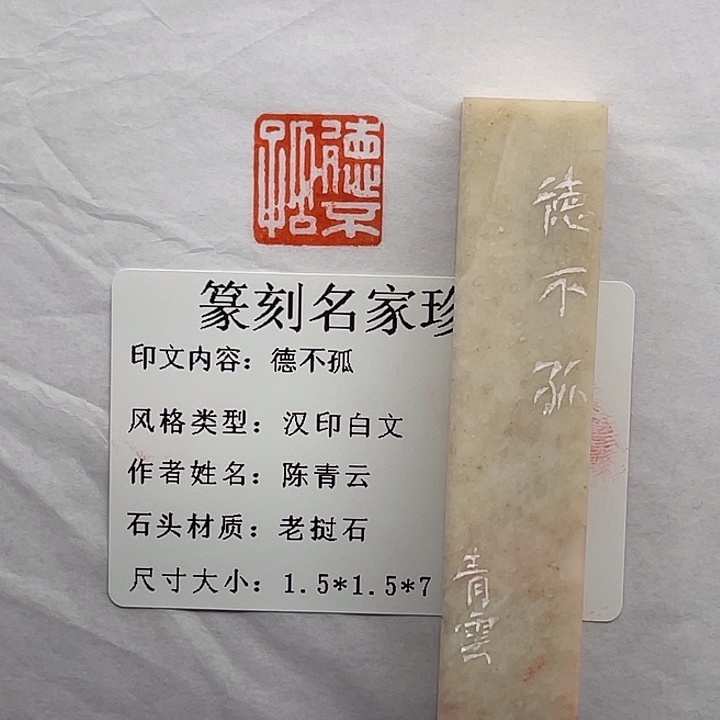 篆刻名家珍
印文内容：德不孤
风格类型：汉印白文
作者姓名：陈青云
石头材质：老挝石
尺寸大小：1.5*1.5*7
德不孤
青雲